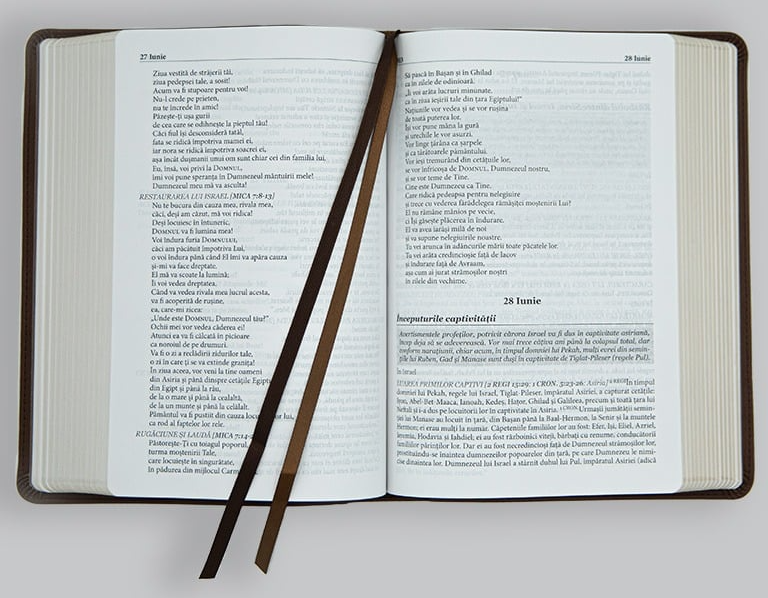 27 Iunie
Ziua vestită de străjerii tăi,
ziua pedepsei tale, a sosit!
Acum va fi stupoare pentru voi!
Nu-l crede pe prieten,
nu te încrede în amic!
Păzește-ți ușa gurii
de cea care se odihnește la pieptul tău!
Căci fiul își desconsideră tatăl,
fata se ridică împotriva mamei ei,
iar nora se ridică împotriva soacrei ei,
așa încât dușmanii unui om sunt chiar cei din familia lui.
Eu, însă, voi privi la DOMNUL,
îmi voi pune speranța în Dumnezeul mântuirii mele!
Dumnezeul meu mă va asculta!
RESTAURAREA LUI ISRAEL [MICA 7:8-13]
Nu te bucura din cauza mea, rivala mea,
căci, deși am căzut, mă voi ridica!
Deși locuiesc în întuneric,
DOMNUL va fi lumina mea!
Voi îndura furia DOMNULUI,
căci am păcătuit împotriva Lui,
o voi îndura până când El îmi va apăra cauza
și-mi va face dreptate.
El mă va scoate la lumină;
îi voi vedea dreptatea.
Când va vedea rivala mea lucrul acesta,
va fi acoperită de rușine,
ea, care-mi zicea:
„Unde este DOMNUL, Dumnezeul tău?”
Ochii mei vor vedea căderea ei!
Atunci ea va fi călcată în picioare
ca noroiul de pe drumuri.
Va fi o zi a reclădirii zidurilor tale,
o zi în care ți se va extinde granița!
În ziua aceea, vor veni la tine oameni
din Asiria și până dinspre cetățile
din Egipt și până la râu,
de la o mare și până la cealaltă,
de la un munte și până la celălalt.
Pământul va fi pustiit din cauza lui,
ca rod al faptelor lor rele.
RUGĂCIUNE ȘI LAUDĂ [MICA
Păstorește-Ți cu toiagul poporul,
turma moștenirii Tale,
care locuiește în singurătate,
în pădurea din mijlocul
28 Iunie
Să pască în Bașan și în Ghilad
ca în zilele de odinioară.
„Îi voi arăta lucruri minunate,
ca în ziua ieșirii tale din țara Egiptului!”
Națiunile vor vedea și se vor rușina
de toată puterea lor.
Își vor pune mâna la gură
și urechile le vor asurzi.
Vor linge țărâna ca șarpele
și ca târâtoarele pământului.
Vor ieși tremurând din cetățuile lor,
se vor înfricoșa de DOMNUL, Dumnezeul nostru,
și se vor teme de Tine.
Cine este Dumnezeu ca Tine,
Care ridică pedeapsa pentru nelegiuire
și trece cu vederea fărădelegea rămășiței moștenirii Lui?
El nu rămâne mânios pe vecie,
ci Își găsește plăcerea în îndurare.
El va avea iarăși milă de noi
și va supune nelegiuirile noastre.
Tu vei arunca în adâncurile mării toate păcatele lor.
Tu vei arăta credincioșie față de Iacov
și îndurare față de Avraam,
așa cum ai jurat strămoșilor noștri
în zilele din vechime.
28 Iunie
Începuturile captivității
Avertismentele profeților, potrivit cărora Israel va fi dus în captivitate asiriană,
încep deja să se adeverească. Vor mai trece câțiva ani până la colapsul total, dar
conform narațiunii, chiar acum, în timpul domniei lui Pekah, mulți evrei din semin-
țiile lui Ruben, Gad și Manase sunt duși în captivitate de Tiglat-Pileser (regele Pul).
În Israel
LUAREA PRIMILOR CAPTIVI [2 REGI 15:29; 1 CRON. 5:23-26; Asiria] 2 REGI În timpul
domniei lui Pekah, regele lui Israel, Tiglat-Pileser, împăratul Asiriei, a capturat cetățile:
Iion, Abel-Bet-Maaca, Ianoah, Kedeș, Hațor, Ghilad și Galileea, precum și toată țara lui
Neftali și i-a dus pe locuitorii lor în captivitate în Asiria. 1 CRON. Urmașii jumătății semin-
ției lui Manase au locuit în țară, din Bașan până la Baal-Hermon, la Senir și la muntele
Hermon; ei erau mulți la număr. Căpeteniile familiilor lor au fost: Efer, Iși, Eliel, Azriel,
Ieremia, Hodavia și Iahdiel; ei au fost războinici viteji, bărbați cu renume, conducătorii
familiilor părinților lor. Dar ei au fost necredincioși față de Dumnezeul strămoșilor lor,
prostituându-se înaintea dumnezeilor popoarelor din țară, pe care Dumnezeu le nimi-
cise dinaintea lor. Dumnezeul lui Israel a stârnit duhul lui Pul, împăratul Asiriei (adică